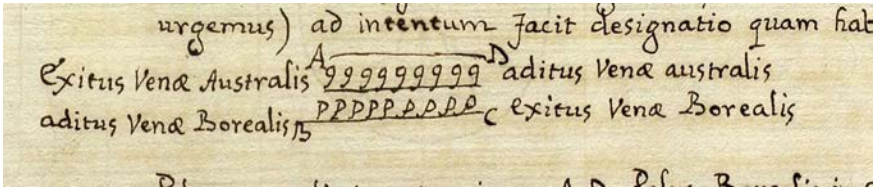 urgemus) ad intentum facit designatio quam hab
Exitus Venæ Australis A ggggggggg D aditus Venæ australis
aditus Venæ Borealis B PPPPPPPPP C exitus Venæ Borealis